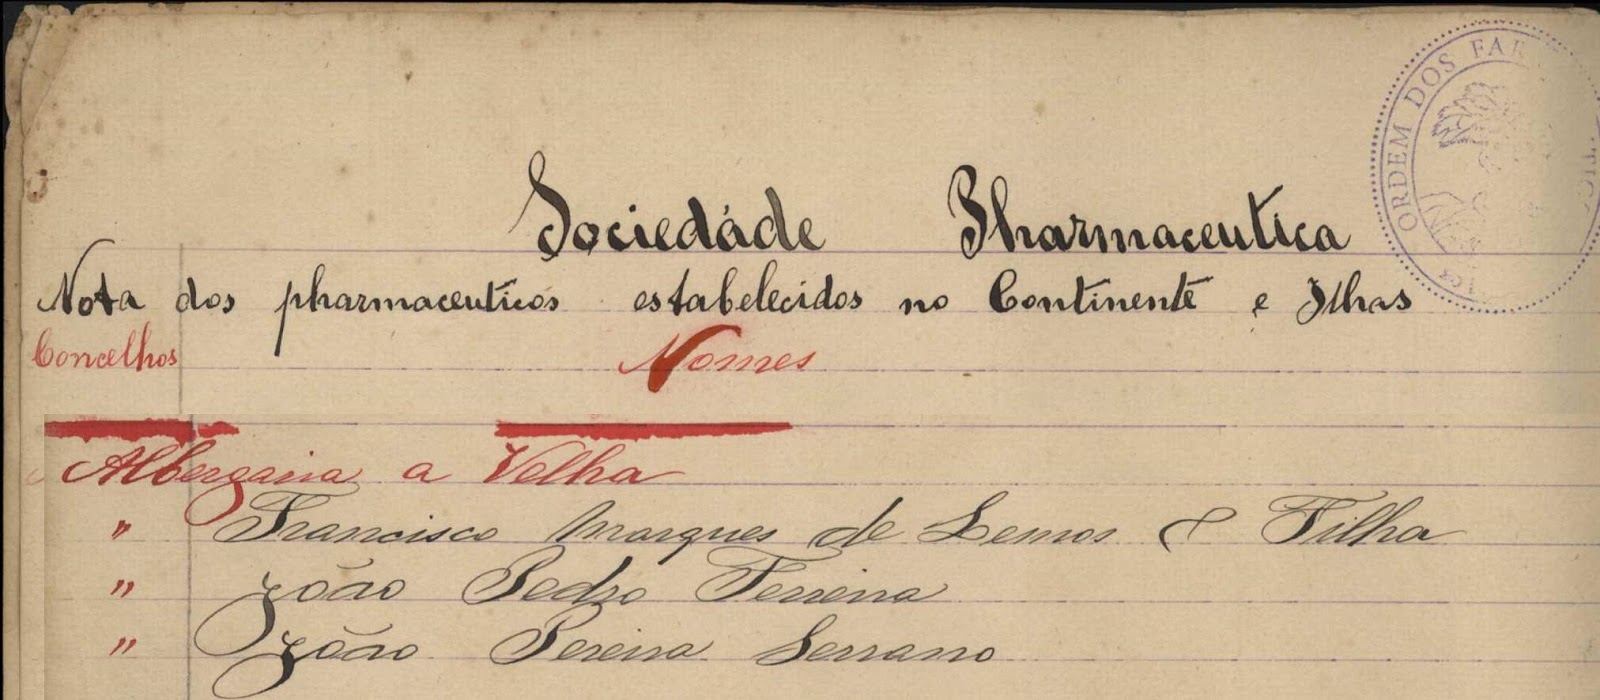 Sociedade Pharmaceutica
Nota dos pharmaceuticos estabelecidos no Continente e Ilhas
Concelhos Nomes
Albergaria a Velha
" Francisco Marques de Lemos & Filha
" João Pedro Ferreira
" João Pereira Serrano
ORDEM DOS FAR